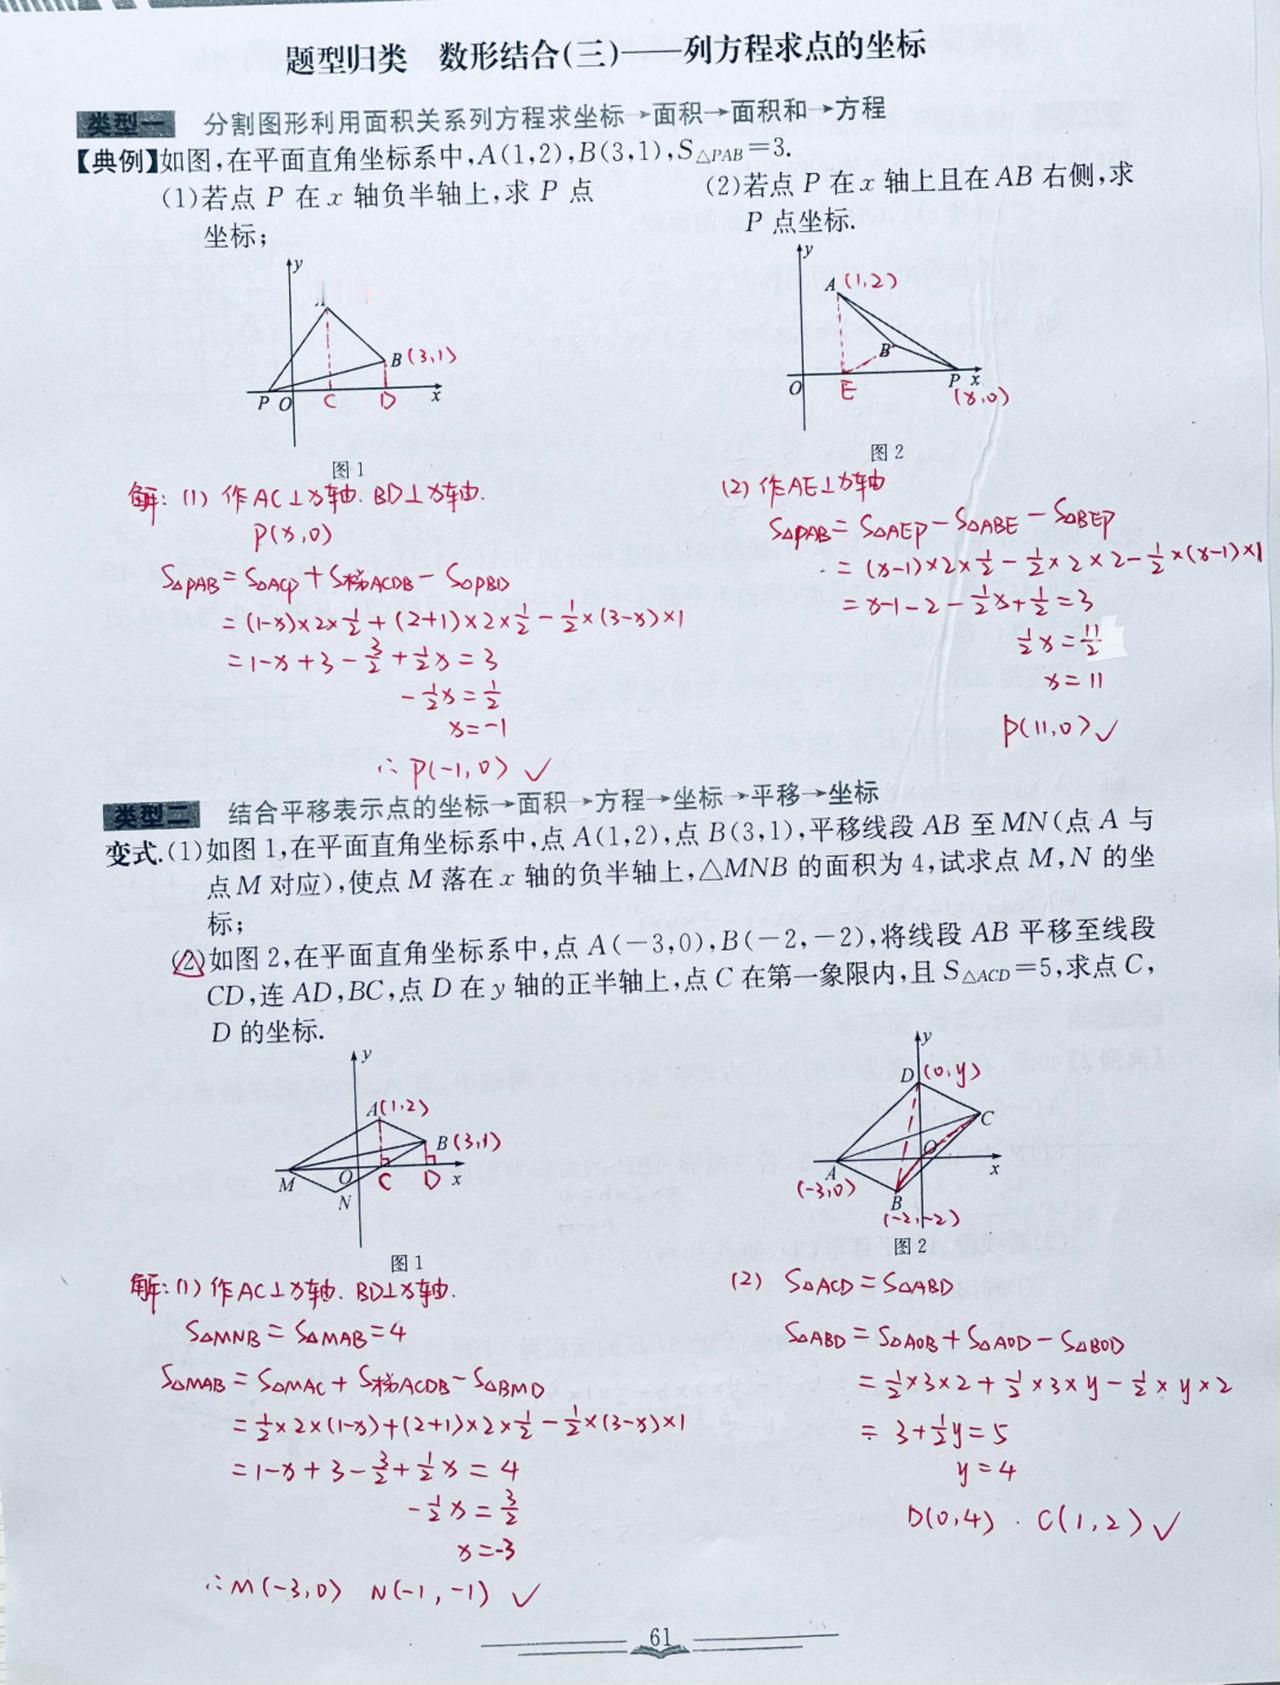 题型归类 数形结合(三)——列方程求点的坐标
类型一 分割图形利用面积关系列方程求坐标→面积→面积和→方程
【典例】如图,在平面直角坐标系中,A(1,2),B(3,1),S△PAB=3.
(1)若点 P 在 x 轴负半轴上,求 P 点
坐标;
(2)若点 P 在 x 轴上且在 AB 右侧,求
P 点坐标.
y
B(3,1)
P O C D x
图1
y
A(1,2)
B
O E P x
(x,0)
图2
解:(1) 作AC⊥x轴. BD⊥x轴.
P(x,0)
S△PAB=S△ACP+S梯ACDB-S△PBD
=(1-x)×2×1/2+(2+1)×2×1/2-1/2×(3-x)×1
=1-x+3-3/2+1/2x=3
-1/2x=1/2
x=-1
∴P(-1,0) ✓
(2) 作AE⊥x轴
S△PAB=S△AEP-S△ABE-S△BEP
=(x-1)×2×1/2-1/2×2×2-1/2×(x-1)×1
=x-1-2-1/2x+1/2=3
1/2x=11/2
x=11
P(11,0)✓
类型二 结合平移表示点的坐标→面积→方程→坐标→平移→坐标
变式.(1)如图1,在平面直角坐标系中,点 A(1,2),点 B(3,1),平移线段 AB 至MN(点 A 与
点 M 对应),使点 M 落在 x 轴的负半轴上,△MNB 的面积为 4,试求点 M,N 的坐
标;
(2)如图2,在平面直角坐标系中,点 A(-3,0),B(-2,-2),将线段 AB 平移至线段
CD,连 AD,BC,点 D 在 y 轴的正半轴上,点 C 在第一象限内,且 S△ACD=5,求点 C,
D 的坐标.
y
A(1,2)
B(3,1)
M O C D x
N
图1
y
D(0,y)
C
O
A x
(-3,0)
B
(-2,-2)
图2
解:(1) 作AC⊥x轴. BD⊥x轴.
S△MNB=S△MAB=4
S△MAB=S△MAC+S梯ACDB-S△BMD
=1/2×2×(1-x)+(2+1)×2×1/2-1/2×(3-x)×1
=1-x+3-3/2+1/2x=4
-1/2x=3/2
x=-3
∴M(-3,0) N(-1,-1) ✓
(2) S△ACD=S△ABD
S△ABD=S△AOB+S△AOD-S△BOD
=1/2×3×2+1/2×3×y-1/2×y×2
=3+1/2y=5
y=4
D(0,4) . C(1,2)✓
61